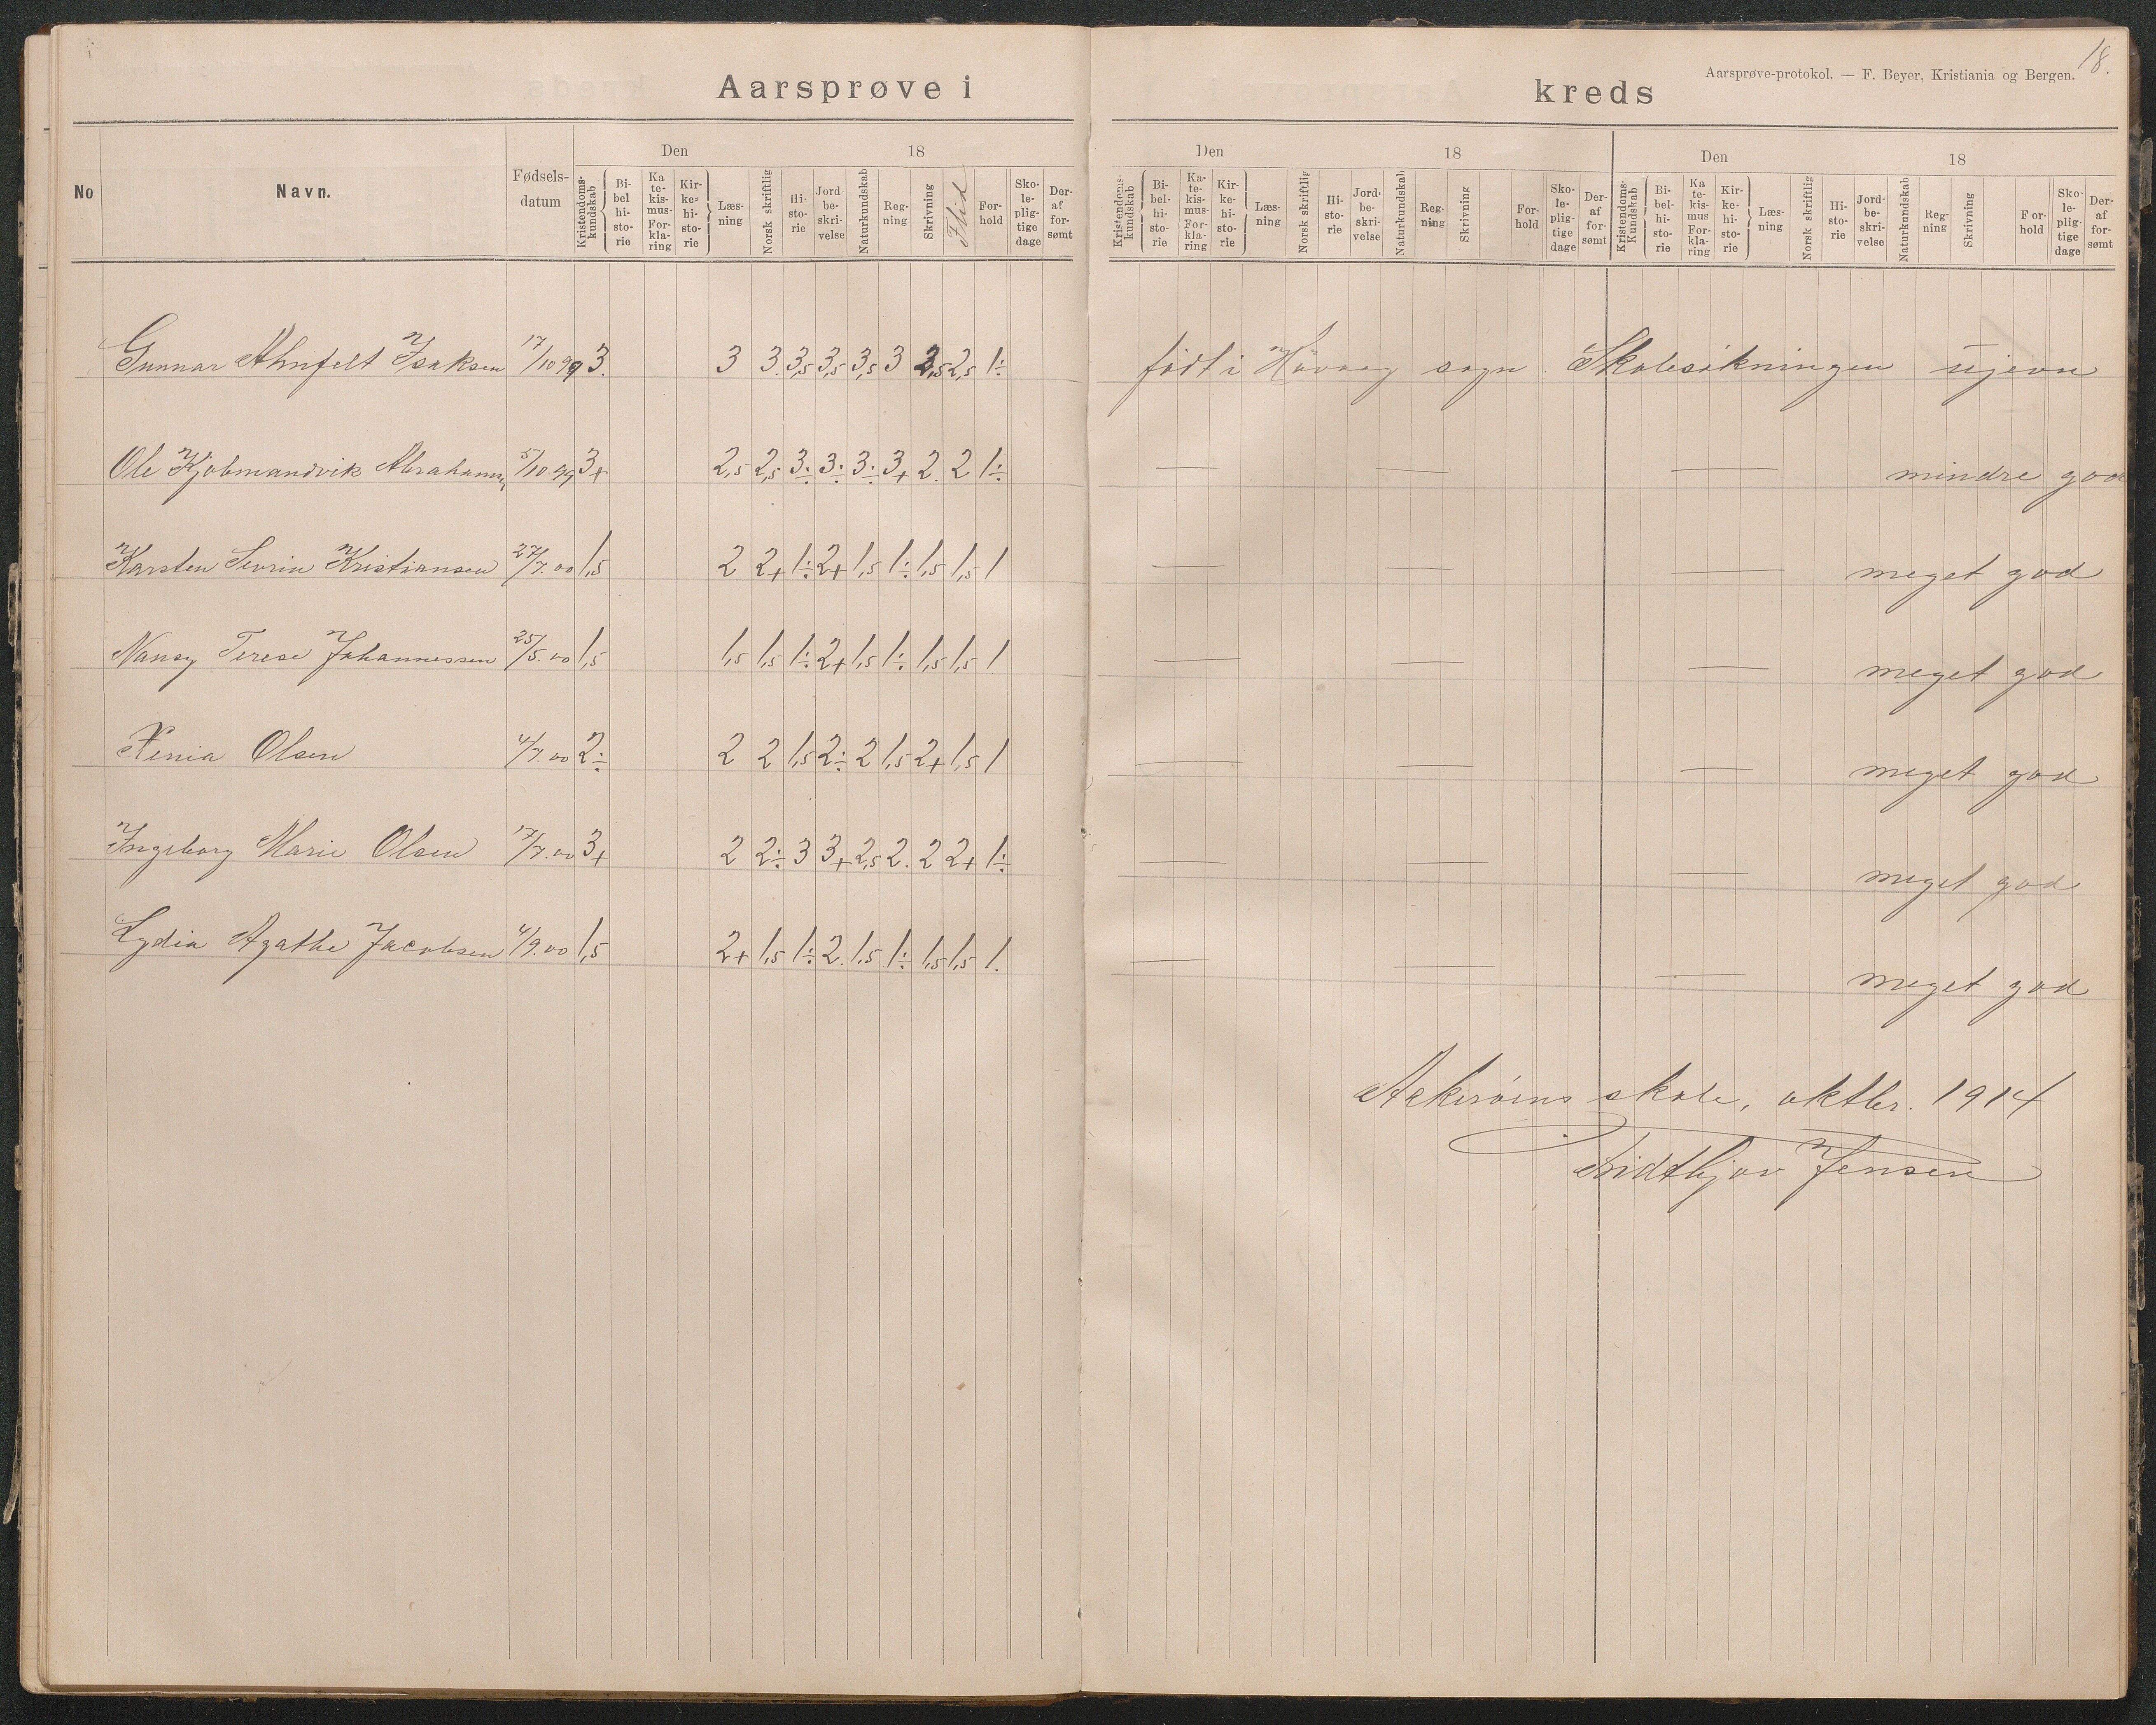 18.
Aarsprøve-protokol. — F. Beyer, Kristiania og Bergen.
Aarsprøve i kreds
No Navn. Fødselsdatum Den 18 Den 18 Den 18
Kristendomskundskab Bibelhistorie Katekismus-Forklaring Kirkehistorie Læsning Norsk skriftlig Historie Jordbeskrivelse Naturkundskab Regning Skrivning Flid Forhold Skolepligtige dage Deraf forsømt
Kristendomskundskab Bibelhistorie Katekismus-Forklaring Kirkehistorie Læsning Norsk skriftlig Historie Jordbeskrivelse Naturkundskab Regning Skrivning Forhold Skolepligtige dage Deraf forsømt
Kristendoms-Kundskab Bibelhistorie Katekismus Forklaring Kirkehistorie Læsning Norsk skriftlig Historie Jordbeskrivelse Naturkundskab Regning Skrivning Forhold Skolepligtige dage Deraf forsømt
Gunnar Ahnfelt Isaksen 17/10 99 3. 3 3. 3,5 3,5 3,5 3 2,5 2,5 1÷ født i Høvaag sogn. Skolesøkningen ujevn
Ole Kjøbmandvik Abrahamsen 5/10. 99 3+ 2,5 2,5 3÷ 3÷ 3÷ 3+ 2. 2 1÷ — — — mindre god
Karsten Sevrin Kristiansen 27/7. 00 1,5 2 2+ 1÷ 2+ 1,5 1÷ 1,5 1,5 1 — — — meget god
Nansy Terese Johannessen 25/5. 00 1,5 1,5 1,5 1÷ 2+ 1,5 1÷ 1,5 1,5 1 — — — meget god
Xenia Olsen 4/7. 00 2÷ 2 2 1,5 2÷ 2 1,5 2+ 1,5 1 — — — meget god
Ingeborg Marie Olsen 17/7. 00 3+ 2 2÷ 3 3+ 2,5 2. 2 2+ 1÷ — — — meget god
Lydia Agathe Jacobsen 4/9. 00 1,5 2+ 1,5 1÷ 2. 1,5 1÷ 1,5 1,5 1. — — — meget god
skole, oktbr. 1914
Fridthjov Jensen